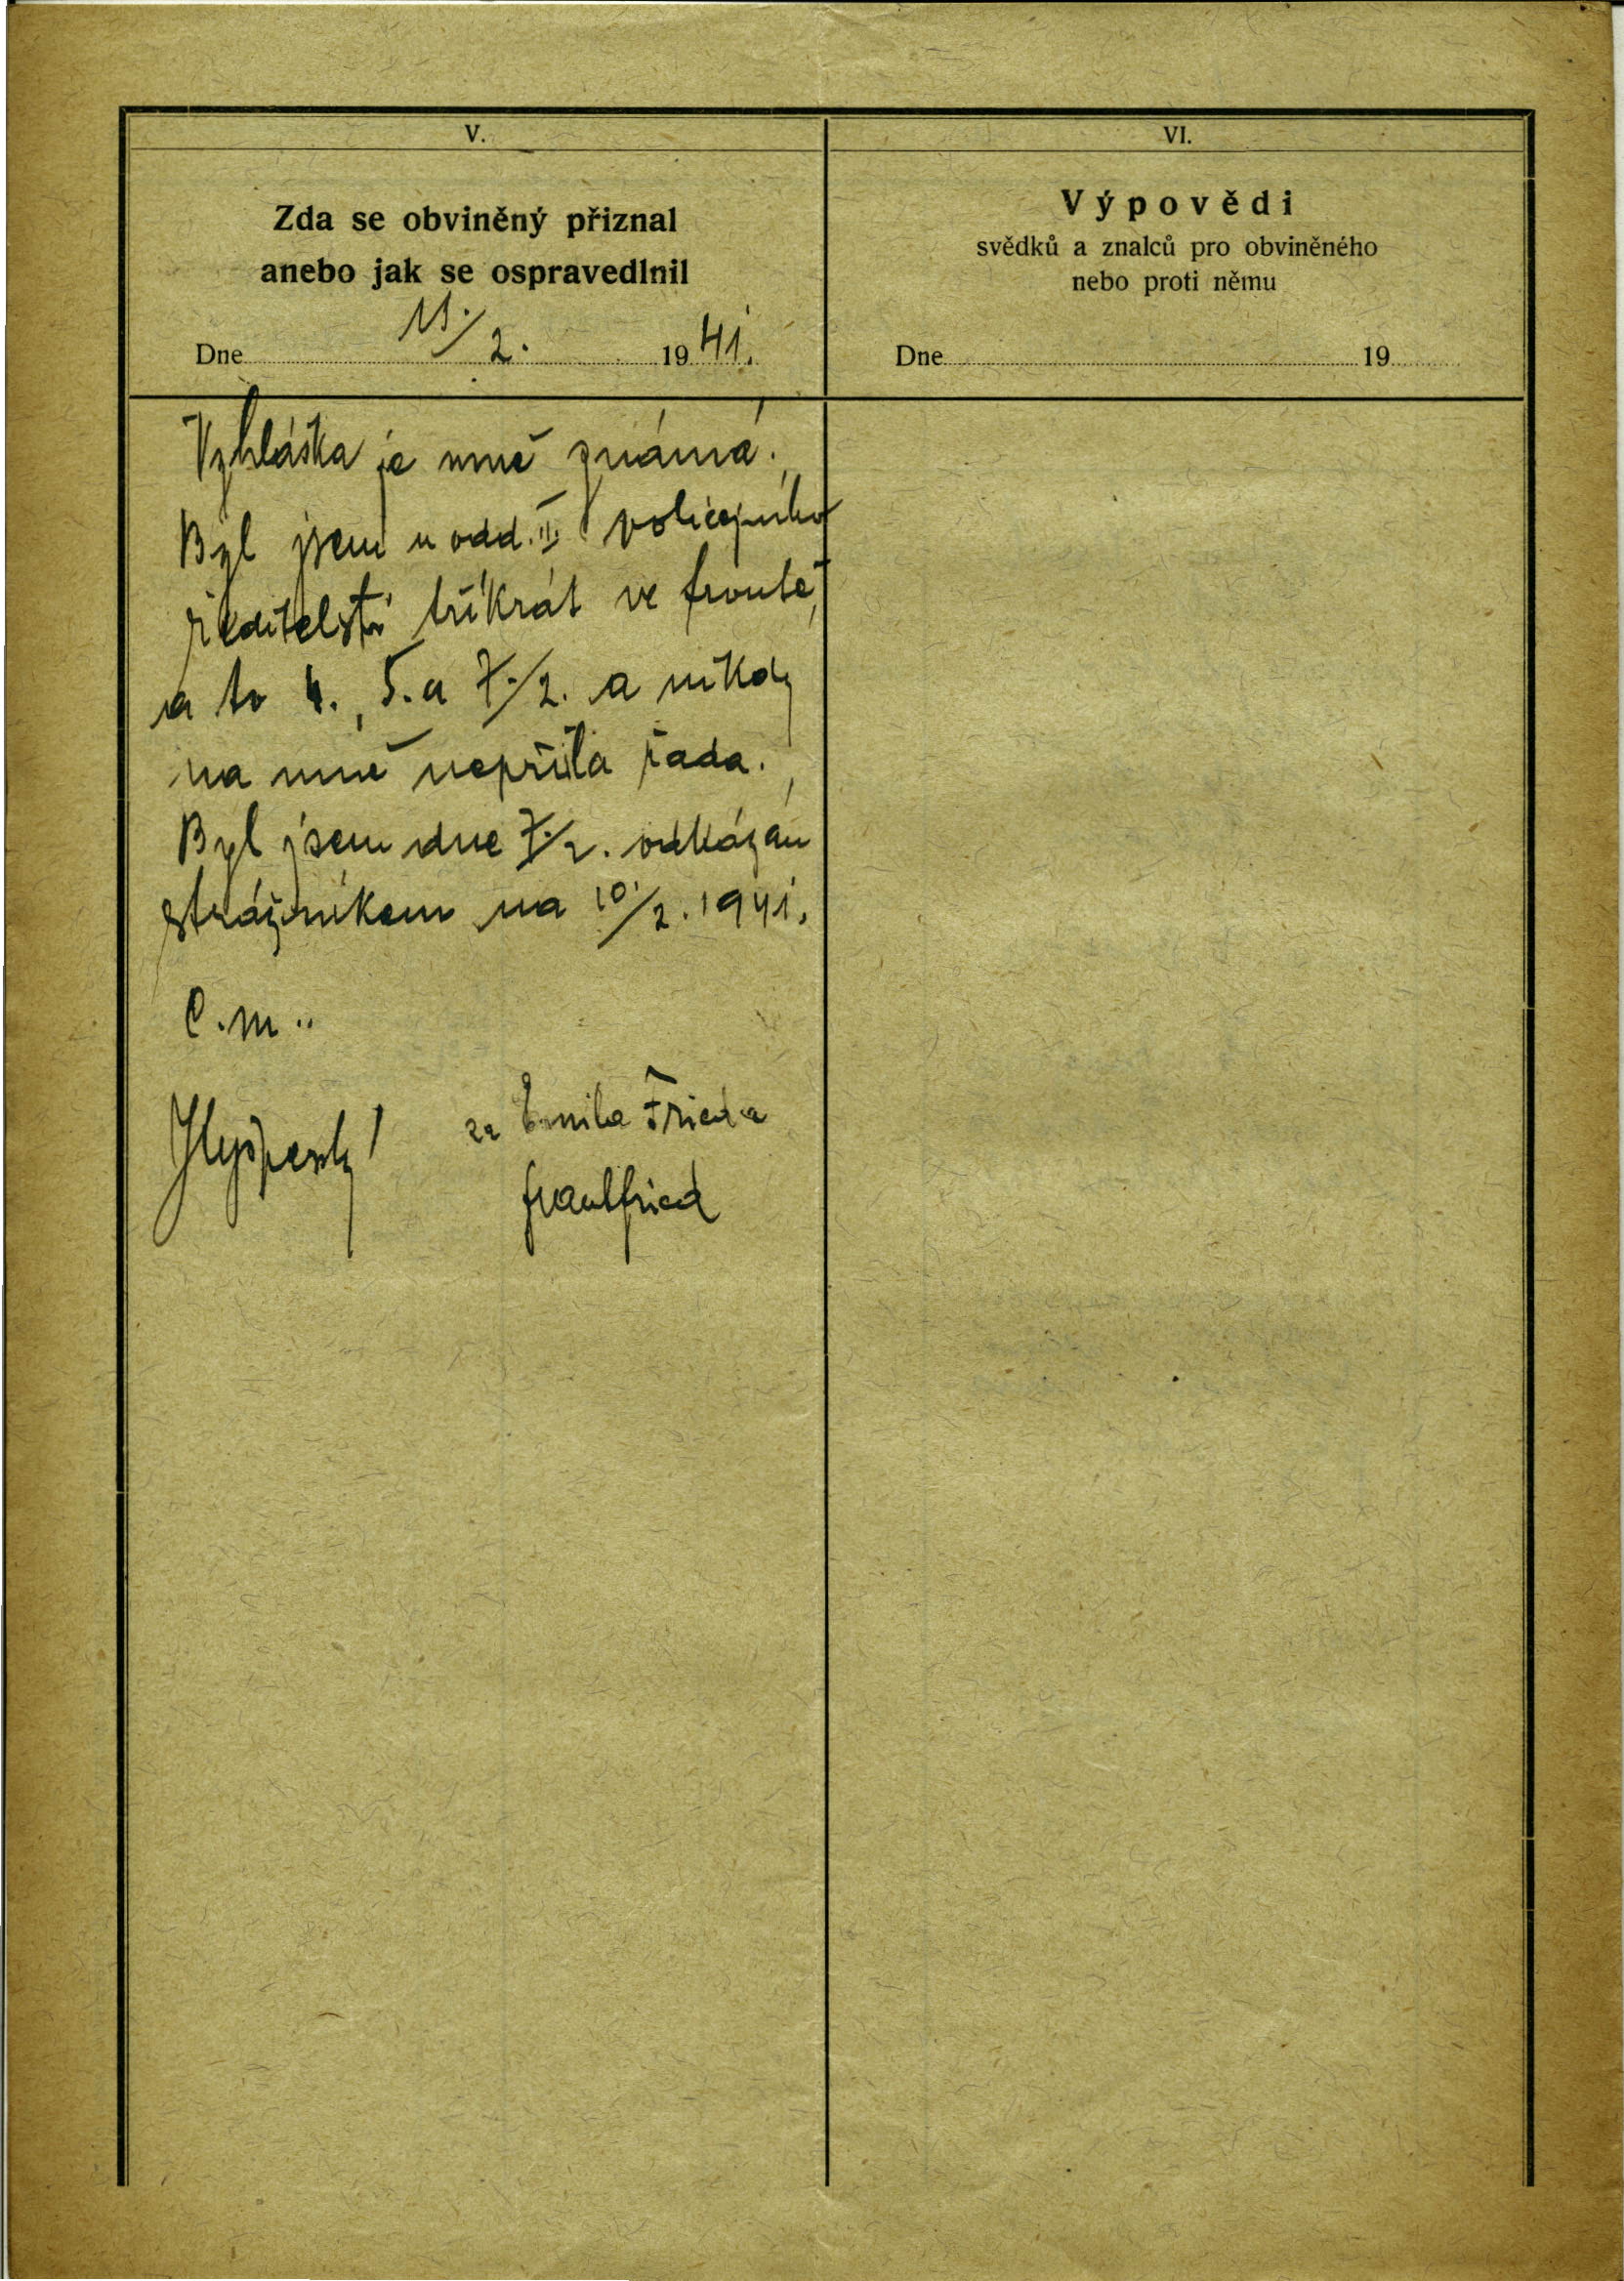 V.
Zda se obviněný přiznal
anebo jak se ospravedlnil
Dne 11./2. 1941.
Vyhláška je mně známá.
Byl jsem u odd. II. policejního
ředitelství třikrát ve frontě,
a to 4., 5. a 7./2. a nikdy
na mně nepřišla řada.
Byl jsem dne 7./2. odkázán
strážníkem na 10./2. 1941.
C. m..
za Emila Frieda
VI.
Výpovědi
svědků a znalců pro obviněného
nebo proti němu
Dne 19